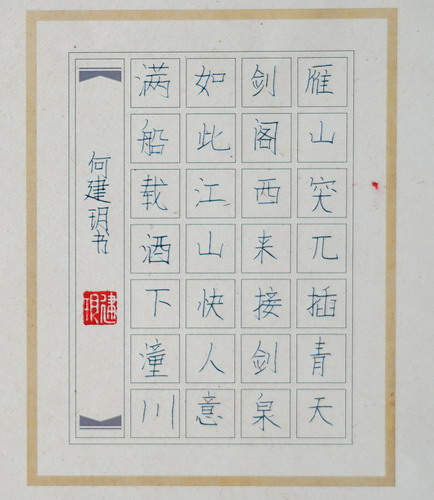 雁山突兀插青天
剑阁西来接剑泉
如此江山快人意
满船载酒下潼川
何建玥书
建玥